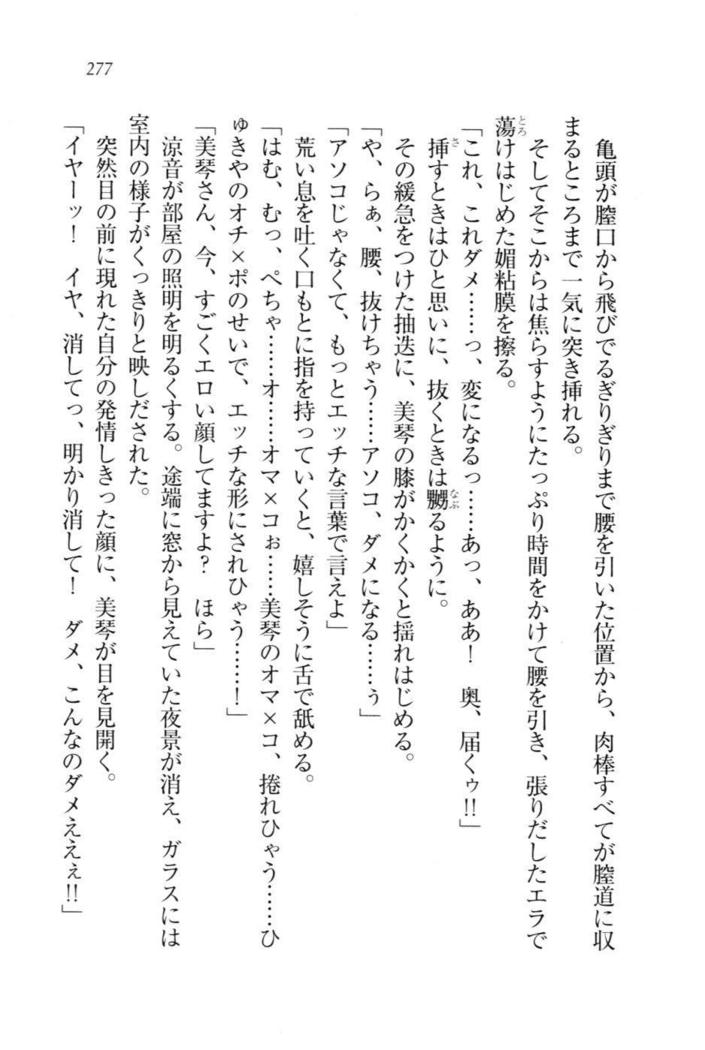 277
亀頭が膣口から飛びでるぎりぎりまで腰を引いた位置から、肉棒すべてが膣道に収
まるところまで一気に突き挿れる。
そしてそこからは焦らすようにたっぷり時間をかけて腰を引き、張りだしたエラで
蕩けはじめた媚粘膜を擦る。
「これ、これダメ……っ、変になるっ……あっ、ああ！　奥、届くゥ!!」
挿すときはひと思いに、抜くときは嬲るように。
その緩急をつけた抽送に、美琴の膝がかくかくと揺れはじめる。
「や、らぁ、腰、抜けちゃう……アソコ、ダメになる……ぅ」
「アソコじゃなくて、もっとエッチな言葉で言えよ」
荒い息を吐く口もとに指を持っていくと、嬉しそうに舌で舐める。
「はむ、むっ、ぺちゃ……オ……オマ×コぉ……美琴のオマ×コ、捲れひゃう……ひ
ゅきやのオチ×ポのせいで、エッチな形にされひゃう……！」
「美琴さん、今、すごくエロい顔してますよ？　ほら」
涼音が部屋の照明を明るくする。途端に窓から見えていた夜景が消え、ガラスには
室内の様子がくっきりと映しだされた。
突然目の前に現れた自分の発情しきった顔に、美琴が目を見開く。
「イヤーッ！　イヤ、消してっ、明かり消して！　ダメ、こんなのダメええぇ!!」